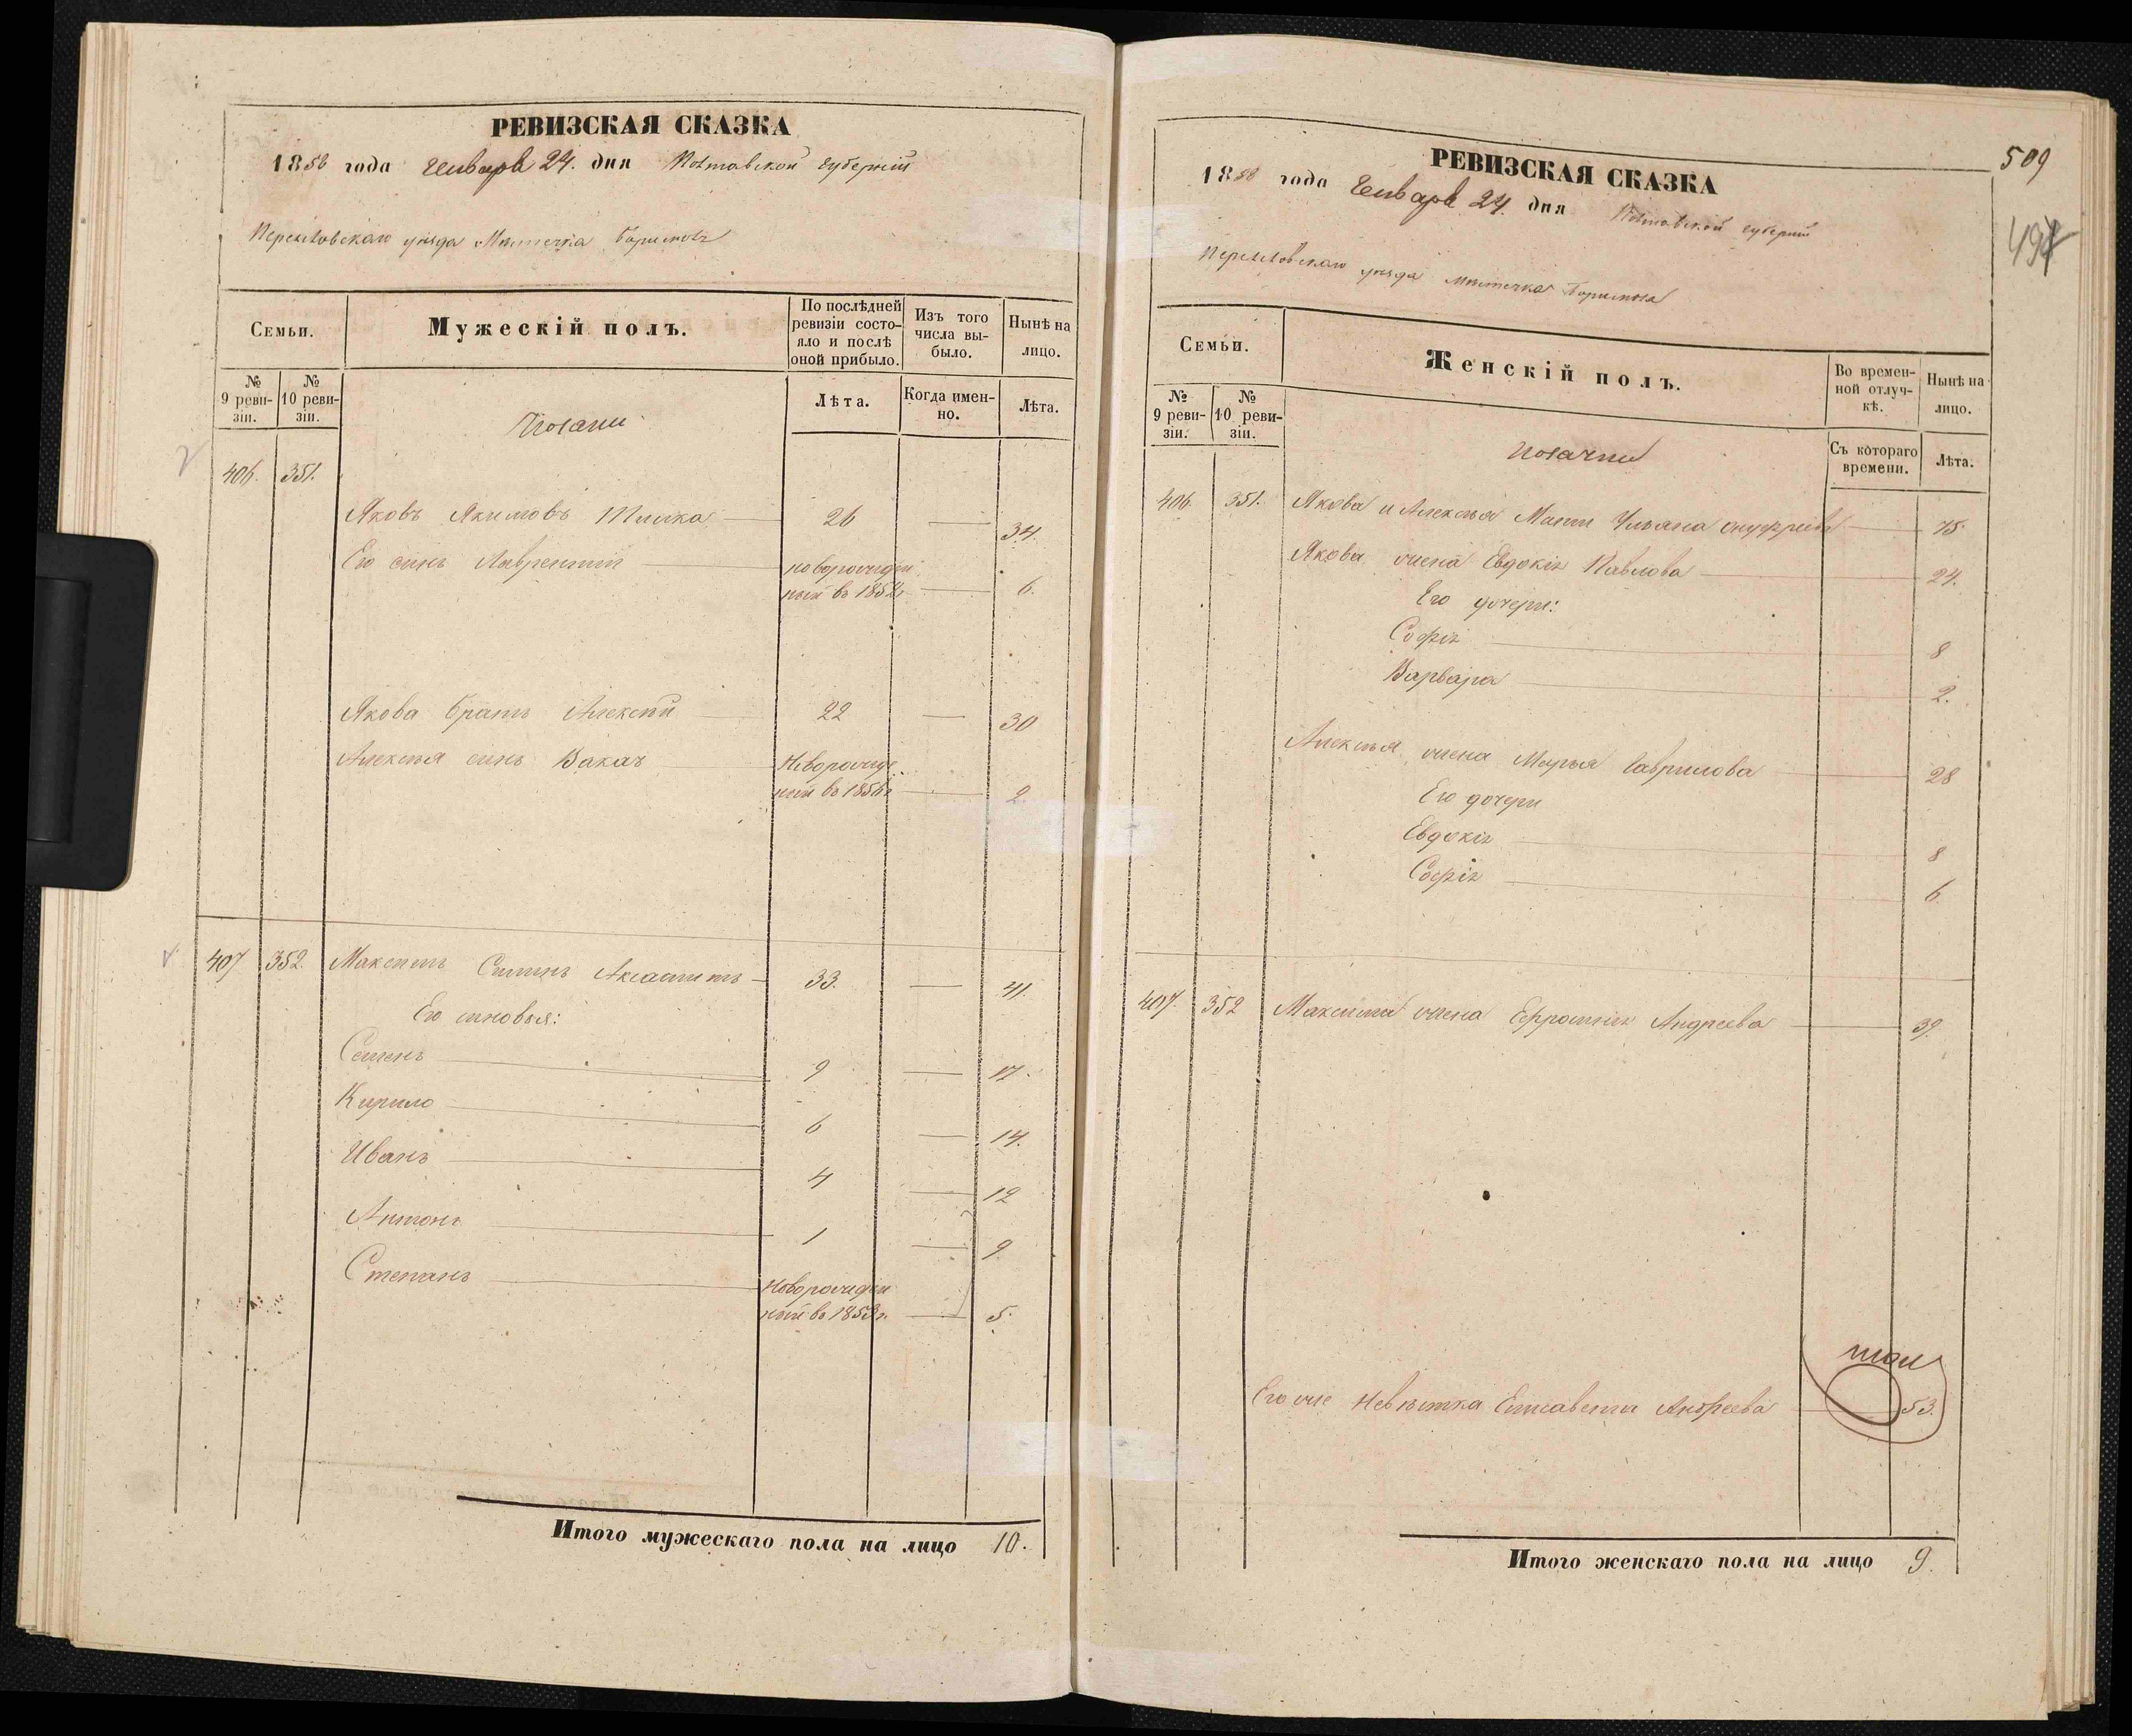 РЕВИЗСКАЯ СКАЗКА
1858 года Генваря 24. дня Полтавской губернии
Переяловскаго уѣзда Мѣстечка
Семьи.
Мужескій полъ.
По послѣдней ревизіи состояло и послѣ оной прибыло.
Изъ того числа выбыло.
Нынѣ на лицо.
№ 9 ревизіи.
№ 10 ревизіи.
Лѣта.
Когда именно.
Лѣта.
406. 351.
Яковъ Якимовъ 26 — 34.
Его сынъ Лаврентій новорожденный въ 1852г — 6.
Якова братъ Алексѣй 22 — 30
Алексѣя сынъ Новорожденный въ 1856г — 2
407 352. Максимъ 33. — 41.
Его сыновья:
Семенъ 9 — 17.
Кирило 6 — 14.
Иванъ 4 — 12
Антонъ 1 — 9
Степанъ Новорожденный въ 1853г. — 5.
Итого мужескаго пола на лицо 10.
509
РЕВИЗСКАЯ СКАЗКА
1858 года Генваря 24. дня Полтавской губерніи
Переяловскаго уѣзда мѣстечка
Семьи.
Женскій полъ.
Во временной отлучкѣ.
Нынѣ на лицо.
№ 9 ревизіи.
№ 10 ревизіи.
Съ котораго времени.
Лѣта.
406. 351. Якова и Алексѣя Мать Ульяна 75.
Якова жена Евдокія Павлова 24.
Его дочери:
Софія 8
Варвара 2.
Алексѣя жена Марья Гаврилова 28
Его дочери
Евдокія 8
Софія 6.
407. 352 Максима жена Андреева 39.
Его же Невѣстка Елисавета Андреева 53.
Итого женскаго пола на лицо 9.